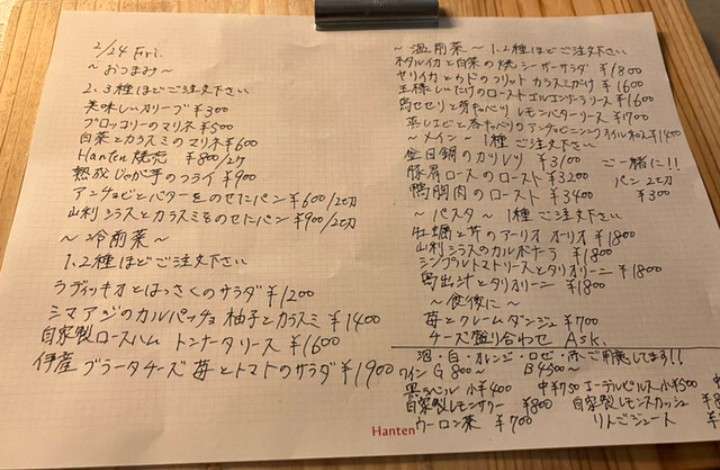 2/24 Fri.
～おつまみ～
2、3種ほどご注文下さい
美味しいオリーブ ¥300
ブロッコリーのマリネ ¥500
白菜とカラスミのマリネ ¥600
Hanten焼売 ¥800/2ヶ
熟成じゃが芋のフライ ¥900
アンチョビとバターをのせたパン ¥600/2切
山利シラスとカラスミをのせたパン ¥900/2切
～冷前菜～
1、2種ほどご注文下さい
ラディッキオとはっさくのサラダ ¥1200
シマアジのカルパッチョ 柚子とカラスミ ¥1400
自家製ロースハム トンナータソース ¥1600
伊産 ブラータチーズ 苺とトマトのサラダ ¥1900
～温前菜～ 1、2種ほどご注文下さい
ホタルイカと白菜の焼シーザーサラダ ¥1800
ヤリイカとウドのフリット カラスミがけ ¥1600
王様しいたけのロースト ゴルゴンゾーラソース ¥1600
鳥セセリと芽キャベツ レモンバターソース ¥1700
蒸しエビと春キャベツのアンチョビニンニクオイル ¥1400
～メイン～ 1種ご注文下さい
金目鯛のカツレツ ¥3100
ご一緒に!!
豚肩ロースのロースト ¥3200
パン 2切
鴨胸肉のロースト ¥3400
¥300
～パスタ～ 1種ご注文下さい
牡蠣と芹のアーリオ オーリオ ¥1800
山利シラスのカルボナーラ ¥1800
シンプルトマトソースとタリオリーニ ¥1800
鳥出汁とタリオリーニ ¥1800
～食後に～
苺とクレームダンジュ ¥700
チーズ盛り合わせ Ask.
泡・白・オレンジ・ロゼ・赤 ご用意してます!!
ワイン G 800～ B 4500～
黒ラベル 小¥400 中¥750 エーデルピルス 小¥500 中
自家製レモンサワー ¥800 自家製レモンスカッシュ
ウーロン茶 ¥700 りんごジュース
Hanten